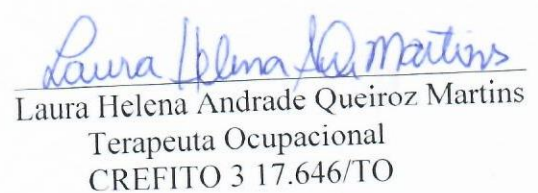 Laura Helena AQ Martins
Laura Helena Andrade Queiroz Martins
Terapeuta Ocupacional
CREFITO 3 17.646/TO